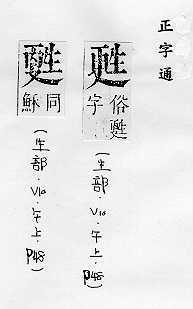 正字通
甦
俗甦
字
(生部.V10.午上.P48)
甦
同
穌
(生部.V10.午上.P48)